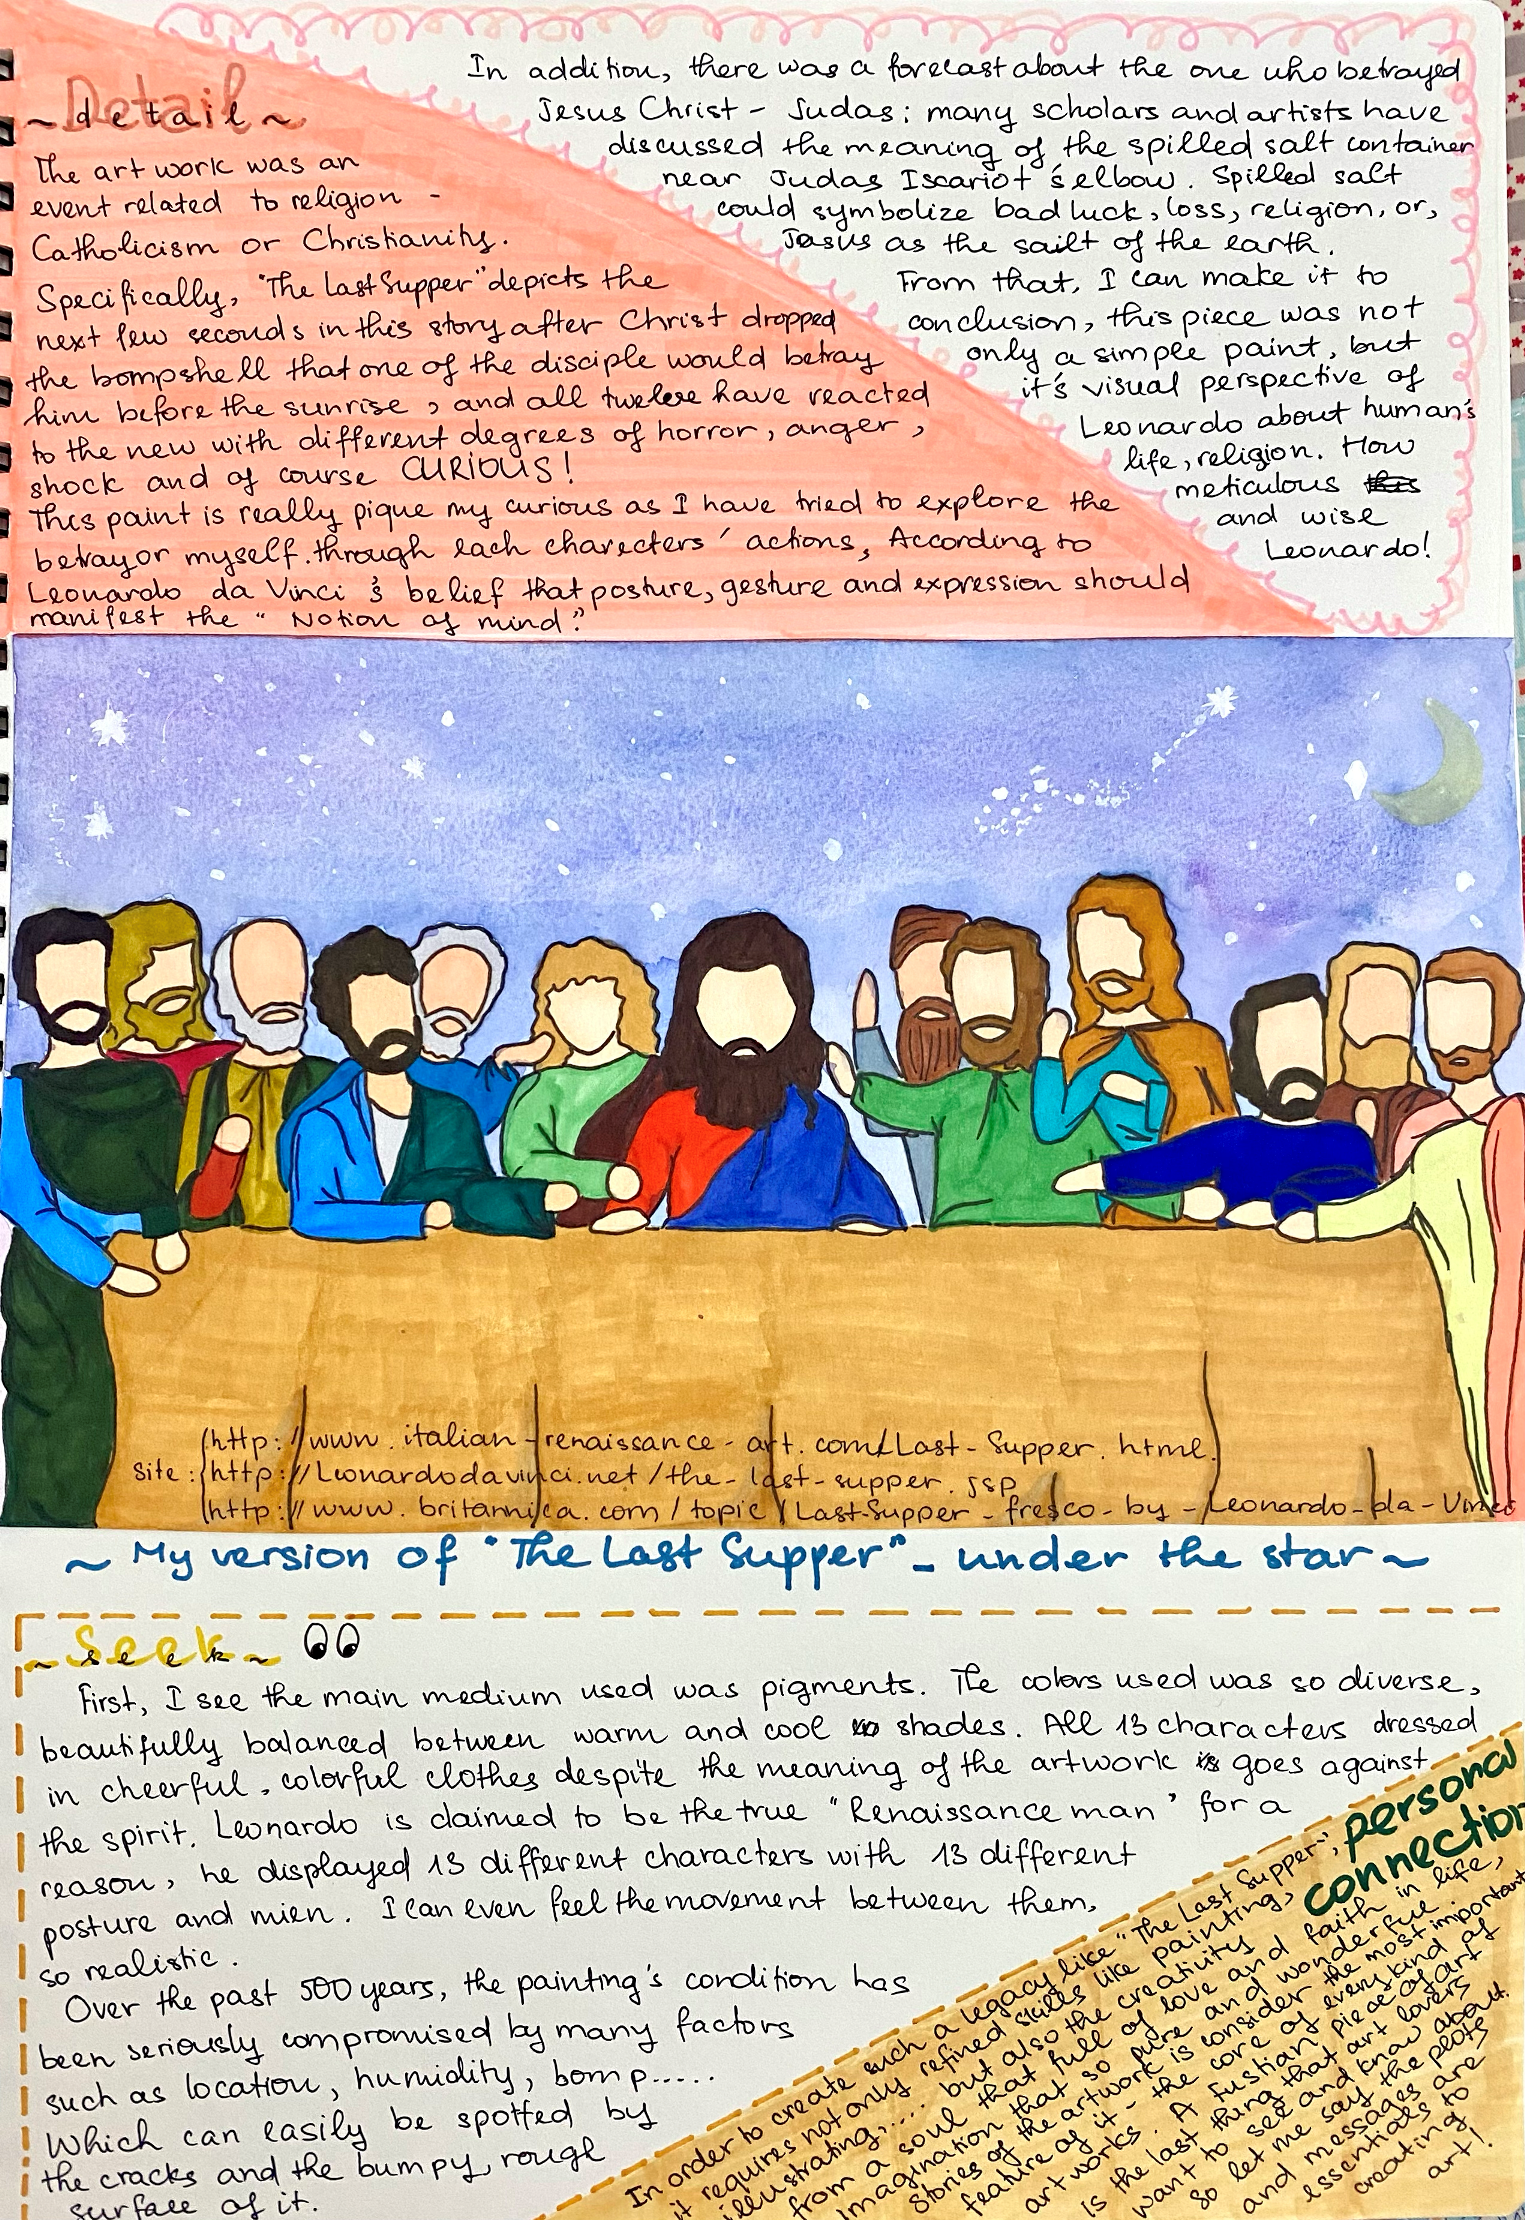 Detail
~ detail ~
The art work was an
event related to religion -
Catholicism or Christianity.
Specifically, "The Last Supper" depicts the
next few seconds in this story after Christ dropped
the bompshell that one of the disciple would betray
him before the sunrise, and all twelve have reacted
to the new with different degrees of horror, anger,
shock and of course CURIOUS!
This paint is really pique my curious as I have tried to explore the
betrayor myself.through each charecters' actions, According to
Leonardo da Vinci's belief that posture, gesture and expression should
manifest the "Notion of mind."
In addition, there was a forecast about the one who betrayed
Jesus Christ - Judas; many scholars and artists have
discussed the meaning of the spilled salt container
near Judas Iscariot's elbow. Spilled salt
could symbolize bad luck, loss, religion, or,
Jesus as the sailt of the earth.
From that, I can make it to
conclusion, this piece was not
only a simple paint, but
it's visual perspective of
Leonardo about human's
life, religion. How
meticulous
and wise
Leonardo!
(http://www.italian-renaissance-art.com/Last-Supper.html
Site: (http://Leonardodavinci.net/the-last-supper.jsp
(http://www.britannica.com/topic/Last-Supper-fresco-by-Leonardo-da-Vinci
~ My version of "The Last Supper" - under the star ~
Seek
~ seek ~
First, I see the main medium used was pigments. The colors used was so diverse,
beautifully balanced between warm and cool shades. All 13 characters dressed
in cheerful, colorful clothes despite the meaning of the artwork goes against
the spirit. Leonardo is claimed to be the true "Renaissance man" for a
reason, he displayed 13 different characters with 13 different
posture and mien. I can even feel the movement between them,
so realistic.
Over the past 500 years, the painting's condition has
been seriously compromised by many factors
such as location, humidity, bomp.....
Which can easily be spotted by
the cracks and the bumpy, rough
surface of it.
personal
connection
In order to create such a legacy like "The Last Supper",
it requires not only refined skills like painting,
illustrating,.... but also the creativity
from a soul that full of love and faith in life,
Imagination that so pure and wonderful
Stories of the artwork is consider the most important
feature of it - the core of every kind of
art works. A fustian piece of art
is the last thing that art lovers
want to see and know about.
So let me say the plots
and messages are
essentials to
creating
art!